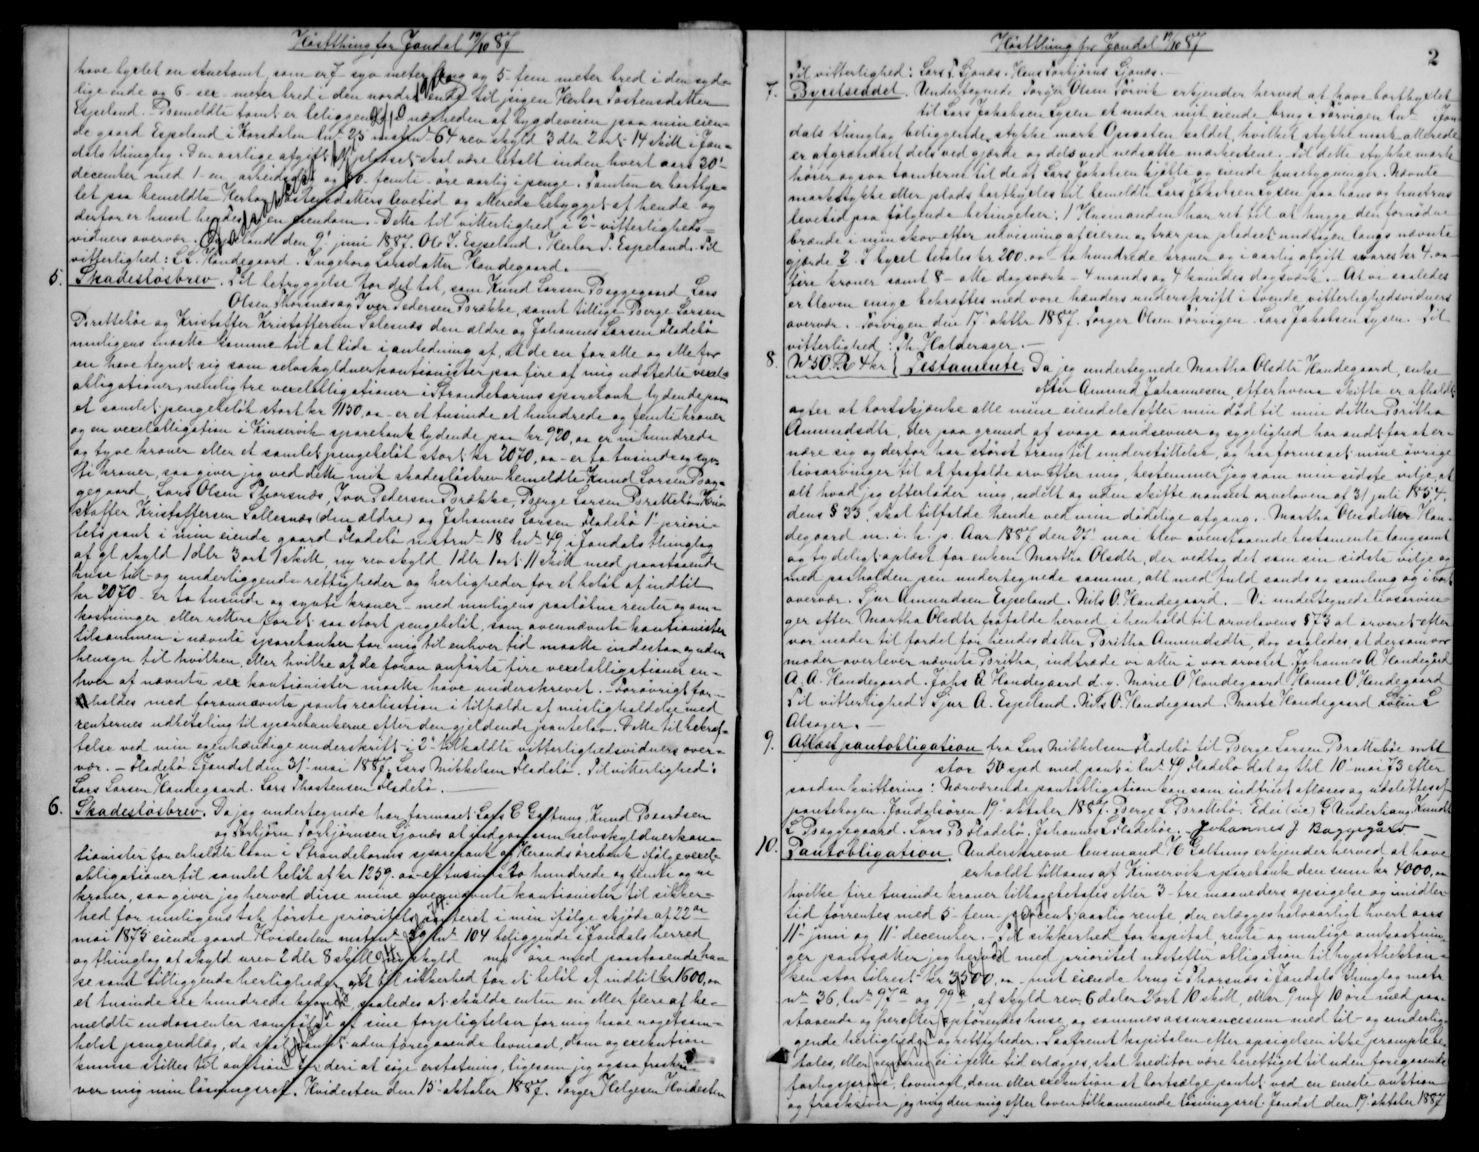 Høstthing for Jondal 19/10 87
have bygslet en stuetomt, som er 7 syv meter lang og 5 fem meter bred i den syd-
lige ende og 6 sex meter bred i den nordre ende til pigen Herbor Tostensdatter
Espeland. Bemeldte tomt er beliggende i nærheden af bygdeveien paa min eien-
de gaard Espeland i Krosdalen 64 rev. skyld 3 dlr 2 ort 14 skill i Jon-
dals thinglag. Den aarlige afgift af pladset skal være betalt inden hvert aars 30'
december med 1 en arbeidsdag og femti øre aarlig i penge. Tomten er bortbyg-
slet paa bemeldte Herbor Tostensdatters levetid og allerede bebygget af hende og
derfor er huset hendes eiendom. Dette til vitterlighed i 2 vitterligheds-
vidners overvær. Espeland den 9' juni 1887. Ole J. Espeland. Herbor T. Espeland. Til
vitterlighed: L. L. Handegaard. Ingeborg Larsdatter Handegaard.
5. Skadesløsbrev. Til betryggelse for det tab, som Knud Larsen Baggegaard, Lars
Olsen Thorsnæs og Iver Pedersen Brække, samt tillige Berge Larsen
Brattebøe og Kristoffer Kristoffersen Solesnæs den ældre og Johannes Larsen Fladebø
muligens maatte komme til at lide i anledning af, at de en for alle og alle for
en have tegnet sig som selvskyldnerkautionister paa fire af mig udstedte vexel-
obligationer, nemlig tre vexelobligationer i Strandebarms sparebank lydende paa
et samlet pengebeløb stort kr 1150,00 er et tusinde et hundrede og femti kroner
og en vexelobligation i Kinservik sparebank lydende paa kr 920,00 er ni hundrede
og tyve kroner eller et samlet pengebeløb stort kr 2070,00 er to tusinde og syv-
ti kroner, saa giver jeg ved dette mit skadesløsbrev bemeldte Knud Larsen Bag-
gegaard, Lars Olsen Thorsnæs, Iver Pedersen Brække, Berge Larsen Brattebø, Kri-
stoffer Kristoffersen Sollesnæs (den ældre) og Johannes Larsen Fladebø 1' priori-
tets pant i min eiende gaard Fladebø matr no 18 lno 49 i Jondals thinglag
af gl. skyld 1 dlr 3 ort 1 skill, ny rev. skyld 1 dlr 1 ort 11 skill med paastaaende
huse til- og underliggende rettigheder og herligheder for et beløb af indtil
kr 2070 er to tusinde og syvti kroner med muligens paaløbne renter og om-
kostninger, eller rettere for et saa stort pengebeløb, som ovennævnte kautionister
tilsammen i nævnte sparebanker for mig til enhver tid maatte indestaa og uden
hensyn til hvilken, eller hvilke af de foran anførte fire vexelobligationer en-
hver af nævnte sex kautionister maatte have underskrevet. Forøvrigt for-
holdes med forannævnte pants realisation i tilfælde af misligholdelse med
renternes udbetaling til sparebankerne efter den gjeldende pantelov. Dette til bekræf-
telse ved min egenhændige underskrift i 2 tilkaldte vitterlighedsvidners over-
vær. Fladebø i Jondal den 31' mai 1887. Lars Mikkelsen Fladebø. Til vitterlighed:
Lars Larsen Handegaard. Lars Thostensen Fladebø.
6. Skadesløsbrev. Da jeg undertegnede har formaaet Lars E Galtung, Knud Baardsen
og Torbjørn Torbjørnsen Gjonæs at indgaa som selvskyldnerkau-
tionister for erholdte laan i Strandebarms sparebank og ifølge vexel-
obligationer til samlet beløb af kr 1259.00 er et tusinde to hundrede og femti og ni
kroner, saa giver jeg herved disse mine ovennævnte kautionister til sikker-
hed for muligens tab første prioritets panteret i min ifølge skjøde af 22de
mai 1875 eiende gaard Hvidesten matr no 39 lno 104 beliggende i Jondals herred
og thinglag af skyld urev. 2 dlr 8 skill skyld øre med paastaaende hu-
se samt tilliggende herligheder alt til sikkerhed for et beløb af indtil kr 1600,00
et tusinde sex hundrede kroner saaledes at skulde enten en eller flere af be-
meldte endossenter som følge af sine forpligtelser for mig have noget som-
helst pengeudlæg, da skal pantet uden foregaaende lovmaal, dom og exekution
kunne stilles til auktion for deri at søge erstatning, ligesom jeg ogsaa fraskri-
ver mig min løsningsret. Hvidesten den 15' oktober 1887. Torger Helgesen Hvidesten
Høstthing for Jondal 19/10 87
2
Til vitterlighed: Lars T. Gjonæs. Hans Torbjørns Gjonæs.
7. Bygselseddel. Undertegnede Torger Olsen Torvik erkjender herved at have bortbygslet
til Lars Jakobsen Lysen et under mit eiende brug i Torvigen i Jon-
dals thinglag beliggende stykke mark kaldet, hvilket stykke mark allerede
er afgrændset dels ved gjærde og dels ved nedsatte mærkestene. Til dette stykke mark
hører ogsaa tomterne til de af Lars Jakobsen kjøbte og eiende husebygninger. Nævnte
markstykke eller plads bortbygsles til bemeldte Lars Jakobsen Lysen paa hans og hustrus
levetid paa følgende betingelser: 1 Husmanden har ret til at hugge den fornødne
brænde i min skov efter udvisning af eieren og trær paa pladset undtagen langs nævnte
gjærde. 2. I bygsel betales kr 200.00 to hundrede kroner og i aarlig afgift svares kr 4.00
fire kroner samt 8 otte dagsværk 4 mands og 4 kvindes dagsværk. At vi saaledes
er bleven enige bekræftes med vore hænders underskrift i tvende vitterlighedsvidners
overvær. Torvigen den 17' oktbr 1887. Torger Olsen Torvigen. Lars Jakobsen Lysen. Til
vitterlighed: Th. Halderager.
8. No 50. B 4 kr } Testamente. Da jeg undertegnede Martha Olsdtr Handegaard, enke
efter Amund Johannesen, efter hvem skifte er afholdt
agter at bortskjenke alle mine eiendele efter min død til min datter Britha
Amundsdtr, der paa grund af svage aandsevner og sygelighed har ondt for at er-
nære sig og derfor har størst trang til understøttelse, og har formaaet mine øvrige
livsarvinger til at frafalde arv efter mig, bestemmer jeg som min sidste vilje, at
alt hvad jeg efterlader mig, udelt og uden skifte uanseet arveloven af 31 juli 1854,
dens § 33, skal tilfalde hende ved min dødelige afgang. Martha Olesdatter Han-
degaard m. i. h. p. Aar 1887 den 27' mai blev ovenstaaende testamente langsomt
og tydeligt oplæst for enken Martha Olsdtr, der vedtog det som sin sidste vilje og
med paaholden pen undertegnede samme, alt med fuld sands og samling og i vort
overvær. Sjur Amundsen Espeland. Nils O. Handegaard. Vi undertegnede livsarvin-
ger efter Martha Olsdtr frafalde herved i henhold til arvelovens § 53 al arveret efter
vor moder til fordel for hendes datter Britha Amundsdtr, dog saaledes, at dersom vor
moder overlever nævnte Britha, indtræde vi atter i vor arveret. Johannes A Handegård
A. A. Handegaard. Johs A Handegaard d.y. Marie O Handegaard Hanse O Handegaard
Til vitterlighed: Sjur A. Espeland. Nils O. Handegaard. Marte Handegaard Svein L
Alsager.
9. Aflæst pantobligation fra Lars Mikkelsen Fladebø til Berge Larsen Brattebøe
stor 50 spd med pant i lno 49 Fladebø dat og thl. 10' mai 73 efter
saadan kvittering: Nærværende pantobligation kan som indfriet aflæses og udslettes af
pantebogen. Jondalsøren 19' oktober 1887. Berge L Brattebø. Edei (sic) G Underhaug. Knud
L Baggegaard. Lars B Fladebø. Johannes L Fladebøe. Johannes J Baggegård
10. Pantobligation. Underskrevne lensmand H Galtung erkjender herved at have
erholdt tillaans af Kinservik sparebank den sum kr 4000,00
hvilke fire tusinde kroner tilbagebetales efter 3 tre maaneders opsigelse og imidler-
tid forrentes med 5 fem procent aarlig rente, der erlægges halvaarligt hvert aars
11' juni og 11' december. Til sikkerhed for kapital, rente og mulige omkostnin-
ger pantsætter jeg herved med prioritet næstefter obligation til hypothekban-
ken stor kr 3500,00 mit eiende brug i Thorsnæs i Jondals thinglag matr
no 36, lno 97a og 99a, af skyld rev. 6 daler 2 ort 10 skill, eller 9 mk 10 øre med paa-
staaende og herefter opførende huse og sammes assurancesum med til- og underlig-
gende herligheder og rettigheder. Saafremt kapitalen efter opsigelsen ikke prompte be-
tales, eller renterne ei i rette tid erlægges, skal kreditor være berettiget til uden foregaaende
forligsprøve, lovmaal, dom eller exekution at bortsælge pantet ved en eneste auktion
og fraskriver jeg mig den mig efter loven tilkommende løsningsret. Jondal den 19' oktober 1887